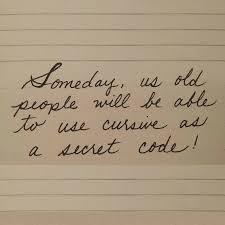 Someday, us old
people will be able
to use cursive as
a secret code!